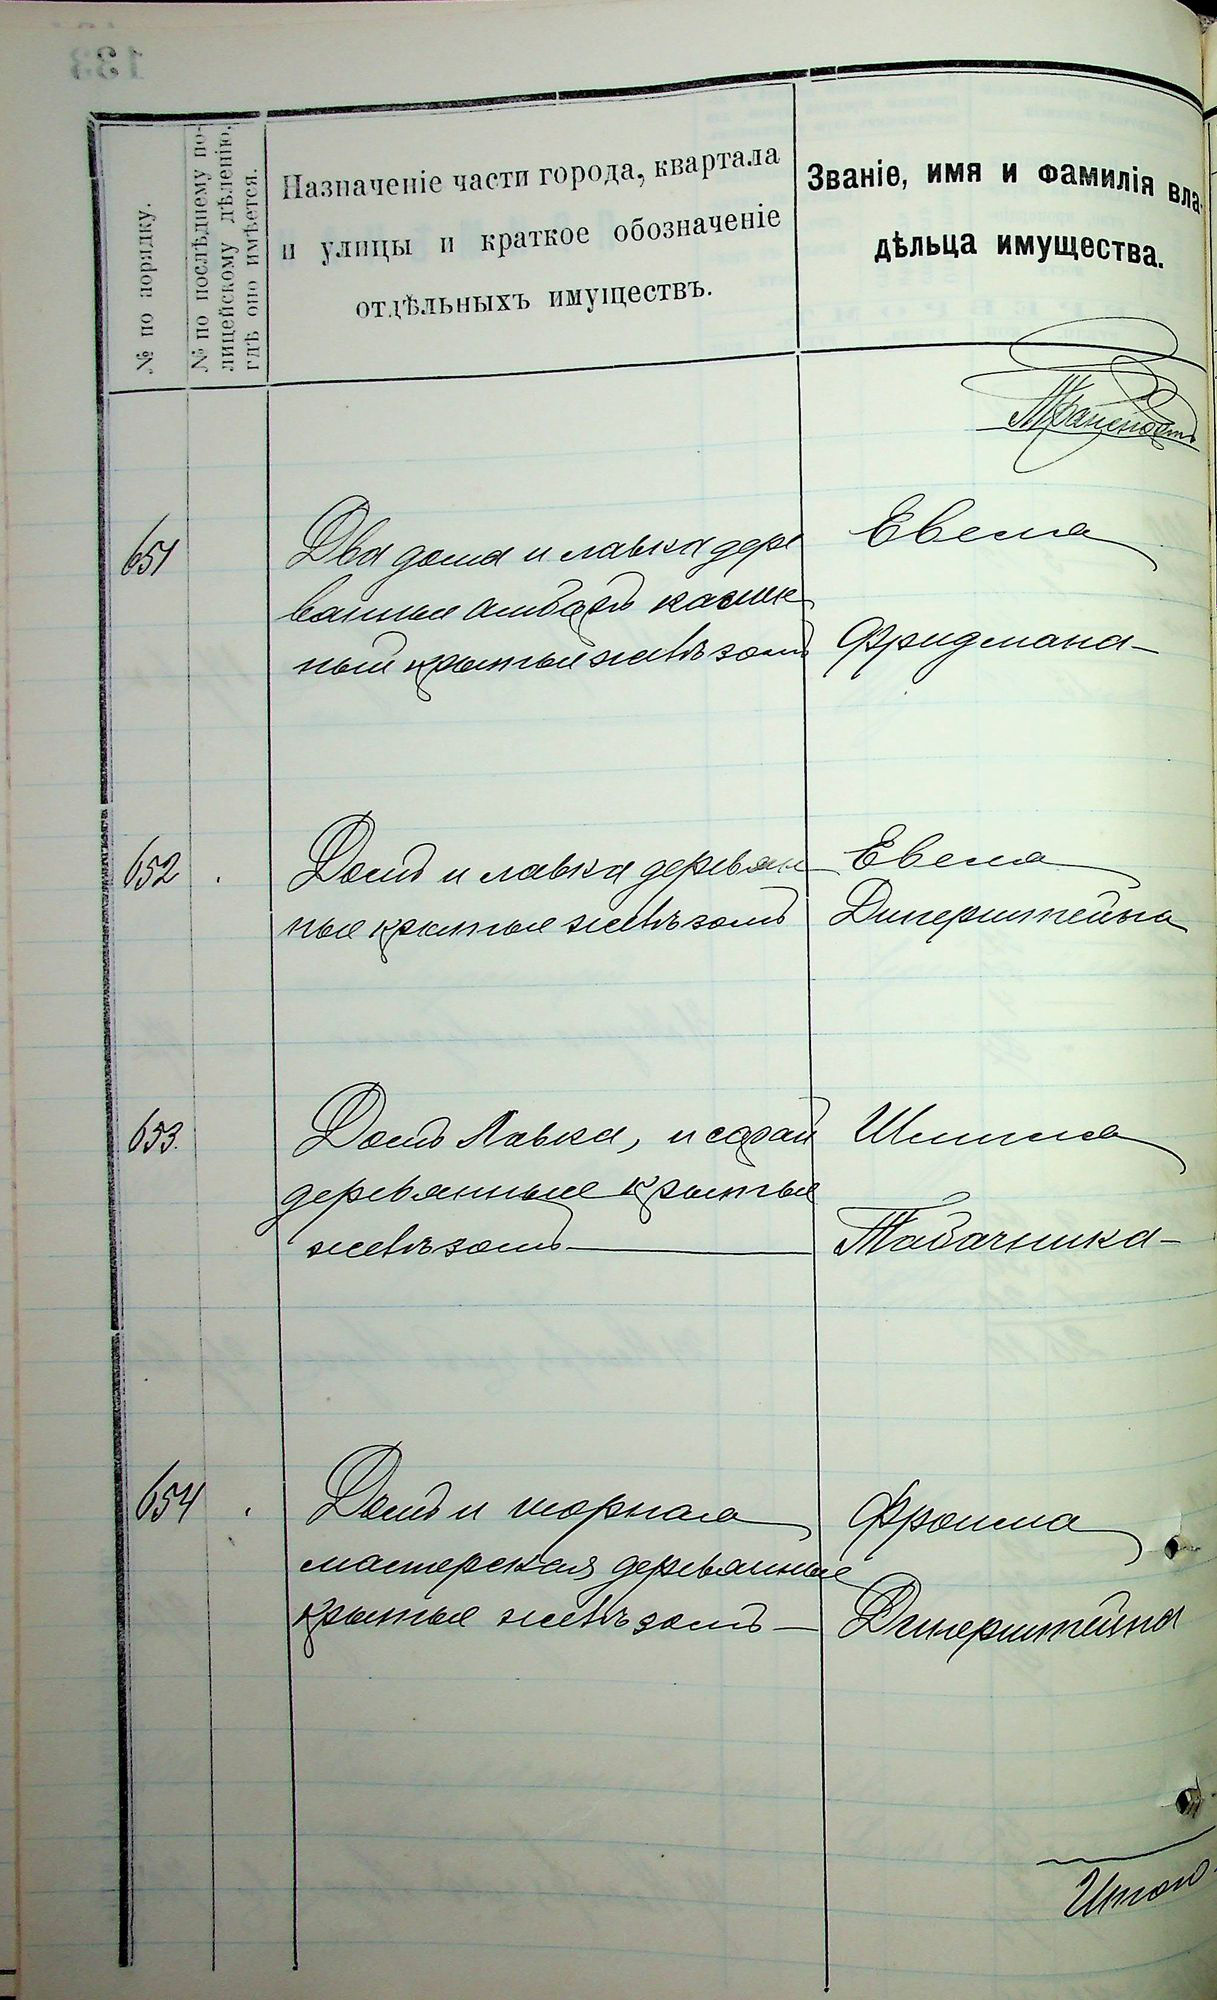 133
№ по порядку.
№ по послѣднему по-
лицейскому дѣленію,
гдѣ оно имѣется.
Назначеніе части города, квартала
и улицы и краткое обозначеніе
отдѣльныхъ имуществъ.
Званіе, имя и фамилія вла-
дѣльца имущества.
Транспортъ
651
Два дома и лавка дере
ванные амбаръ камен
ный крытые желѣзомъ
Евеля
Фридмана
652
Домъ и лавка деревян
ные крытые желѣзомъ
Евеля
Динерштейна
653
Домъ Лавка, и сарай
деревянные крытые
желѣзомъ
Шлиома
Табачника
654
Домъ и шорная
мастерская деревянные
крытые желѣзомъ
Фроима
Динерштейна
Итого